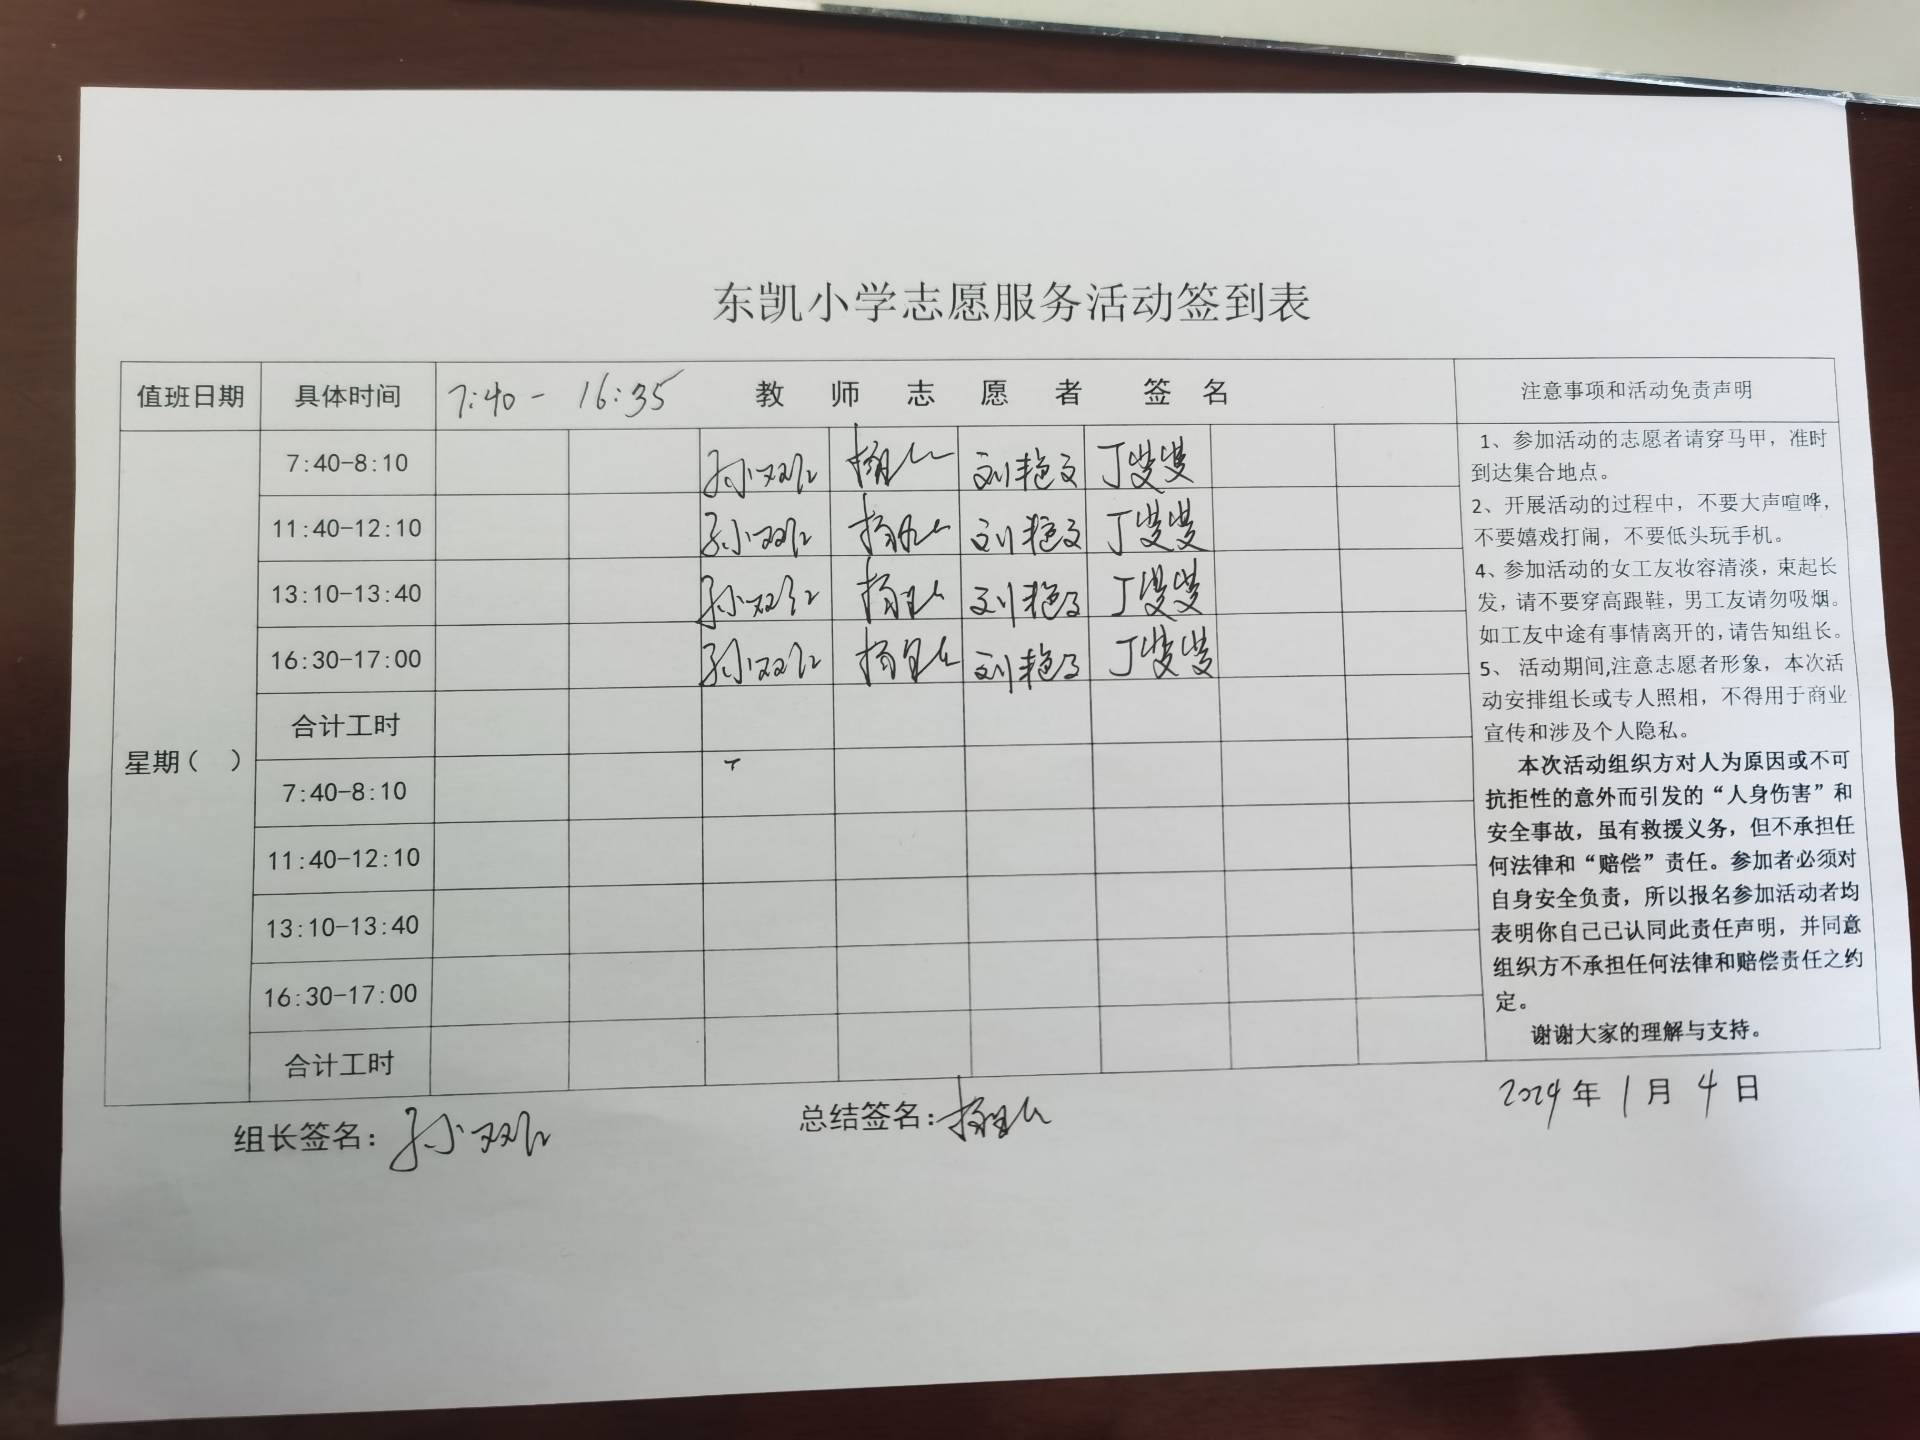 东凯小学志愿服务活动签到表
值班日期 具体时间 7:40- 16:35 教师志愿者签名 注意事项和活动免责声明
7:40-8:10 孙双 刘艳文 丁叟叟
11:40-12:10 孙双 刘艳文 丁叟叟
13:10-13:40 孙双 刘艳文 丁叟叟
16:30-17:00 孙双 刘艳文 丁叟叟
合计工时
星期( )
7:40-8:10
11:40-12:10
13:10-13:40
16:30-17:00
合计工时
1、参加活动的志愿者请穿马甲，准时
到达集合地点。
2、开展活动的过程中，不要大声喧哗，
不要嬉戏打闹，不要低头玩手机。
4、参加活动的女工友妆容清淡，束起长
发，请不要穿高跟鞋，男工友请勿吸烟。
如工友中途有事情离开的,请告知组长。
5、 活动期间,注意志愿者形象，本次活
动安排组长或专人照相，不得用于商业
宣传和涉及个人隐私。
本次活动组织方对人为原因或不可
抗拒性的意外而引发的“人身伤害”和
安全事故，虽有救援义务，但不承担任
何法律和“赔偿”责任。参加者必须对
自身安全负责，所以报名参加活动者均
表明你自己已认同此责任声明，并同意
组织方不承担任何法律和赔偿责任之约
定。
谢谢大家的理解与支持。
组长签名：孙双 总结签名：
2024年1月4日